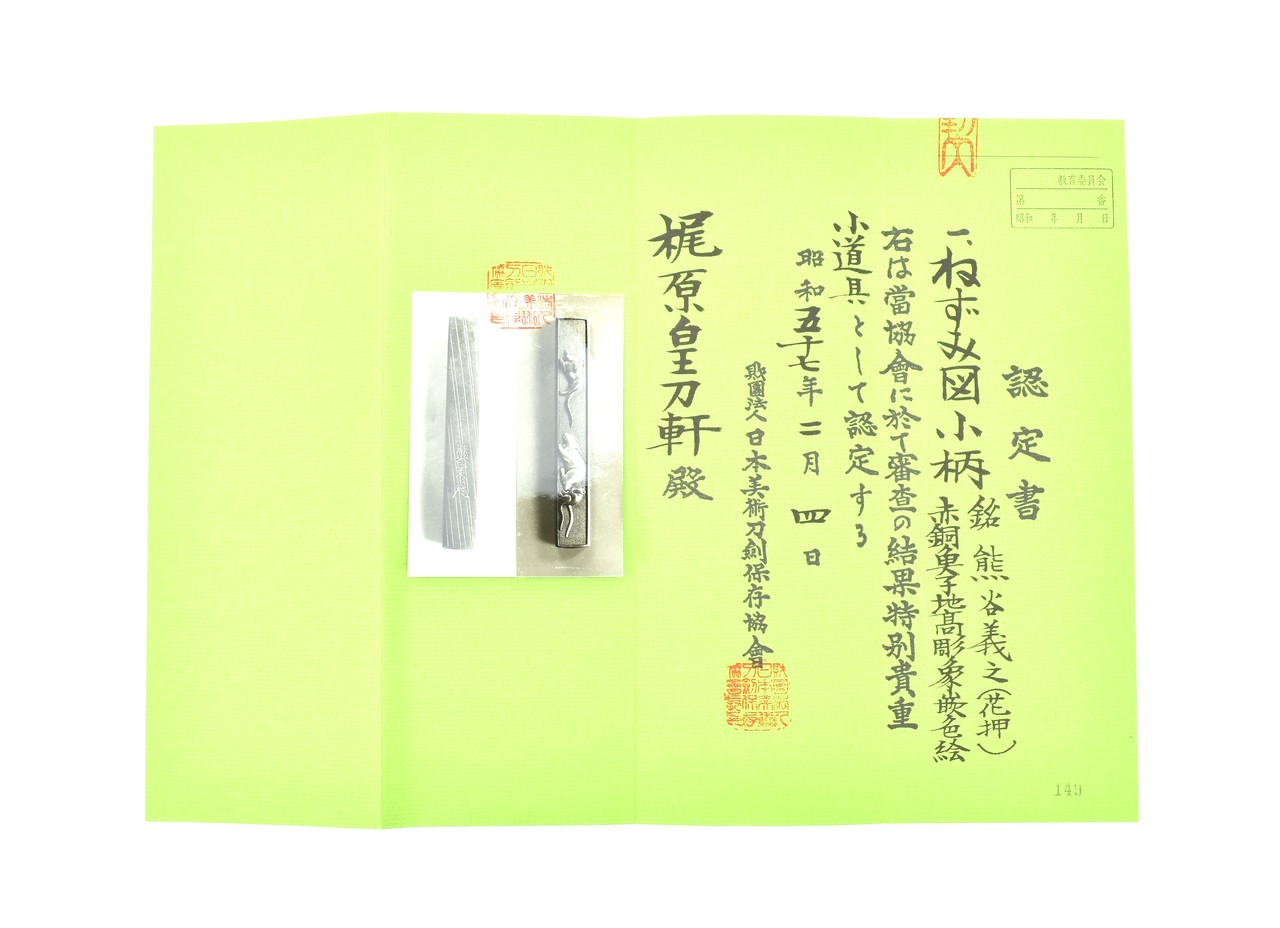 認定書
一、ねずみ図小柄
銘 熊谷義之(花押)
赤銅魚子地高彫象嵌色絵
右は當協會に於て審査の結果特別貴重
小道具として認定する
昭和五十七年二月四日
財團法人日本美術刀劍保存協會
梶原皇刀軒殿
教育委員会
第 番
昭和 年 月 日
149